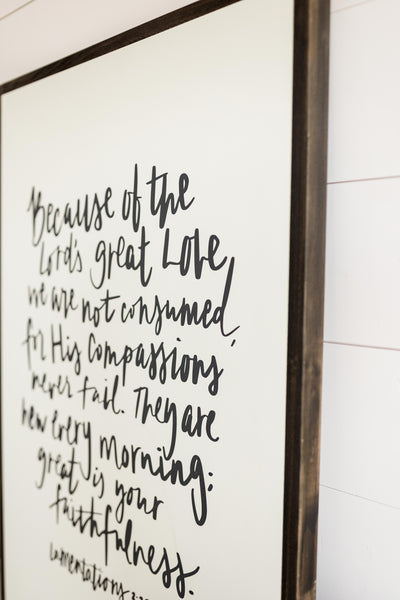 Because of the
Lord's great Love,
we are not consumed,
for His Compassions
never fail. They are
new every morning;
great is your
faithfulness.
Lamentations